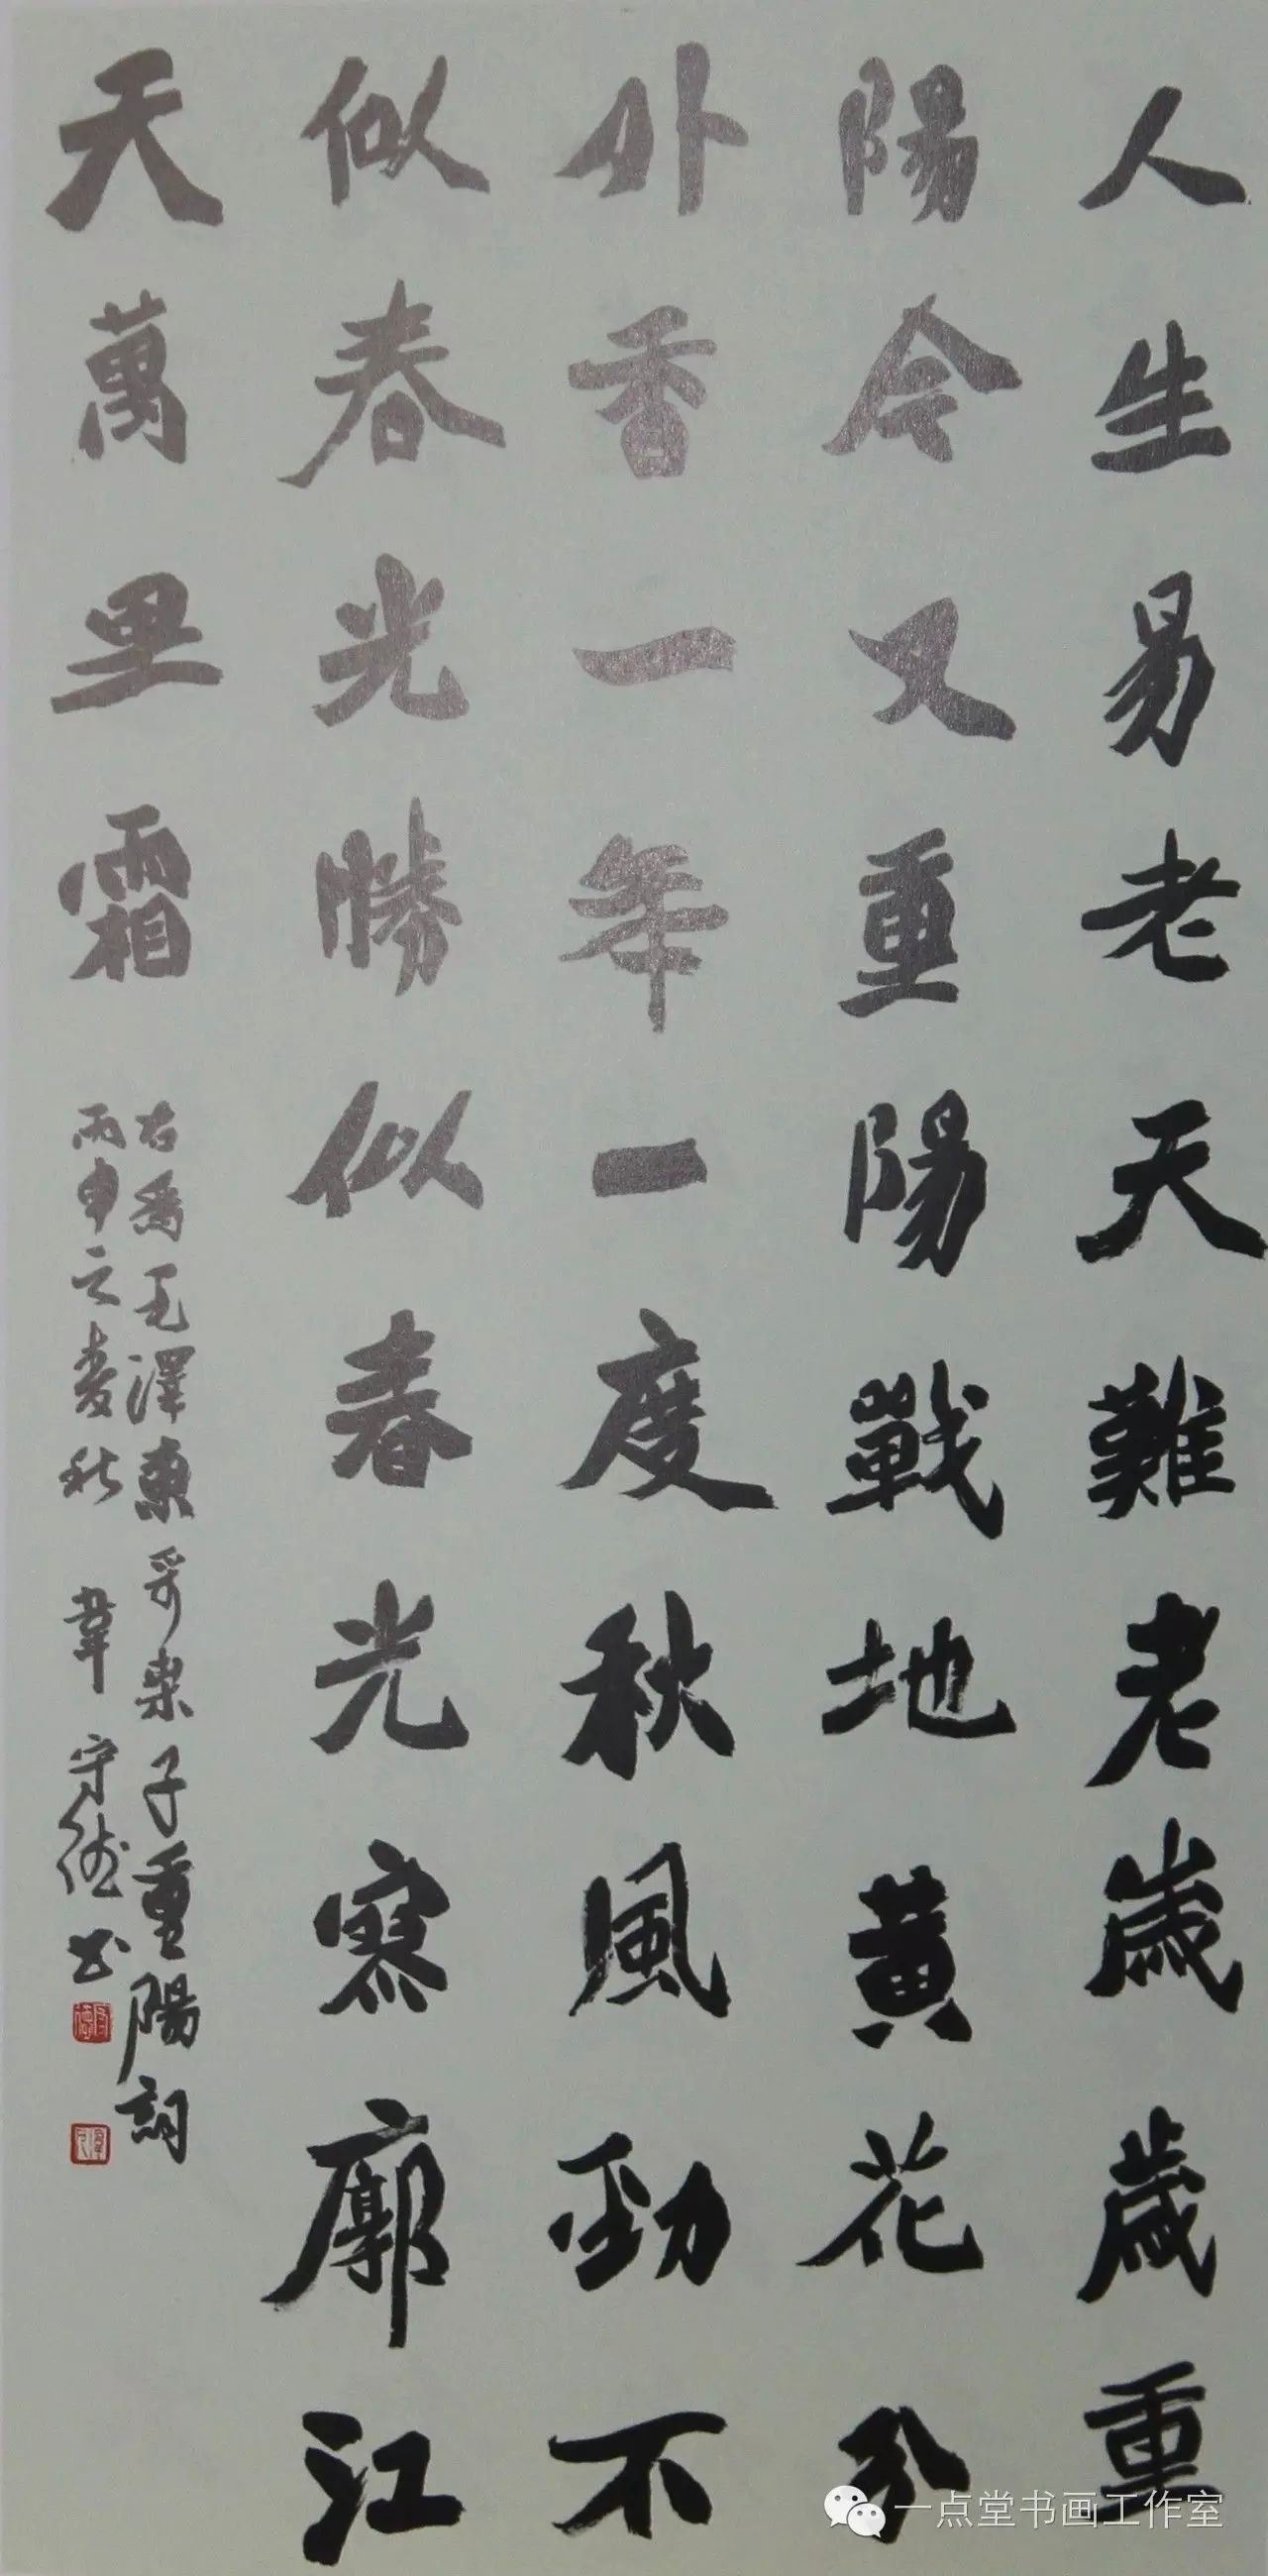 人生易老天難老歲歲重
陽今又重陽戰地黃花分
外香一年一度秋風勁不
似春光勝似春光寥廓江
天萬里霜
右為毛澤東采桑子重陽詞
丙申之麦秋 韋守德书
一点堂书画工作室